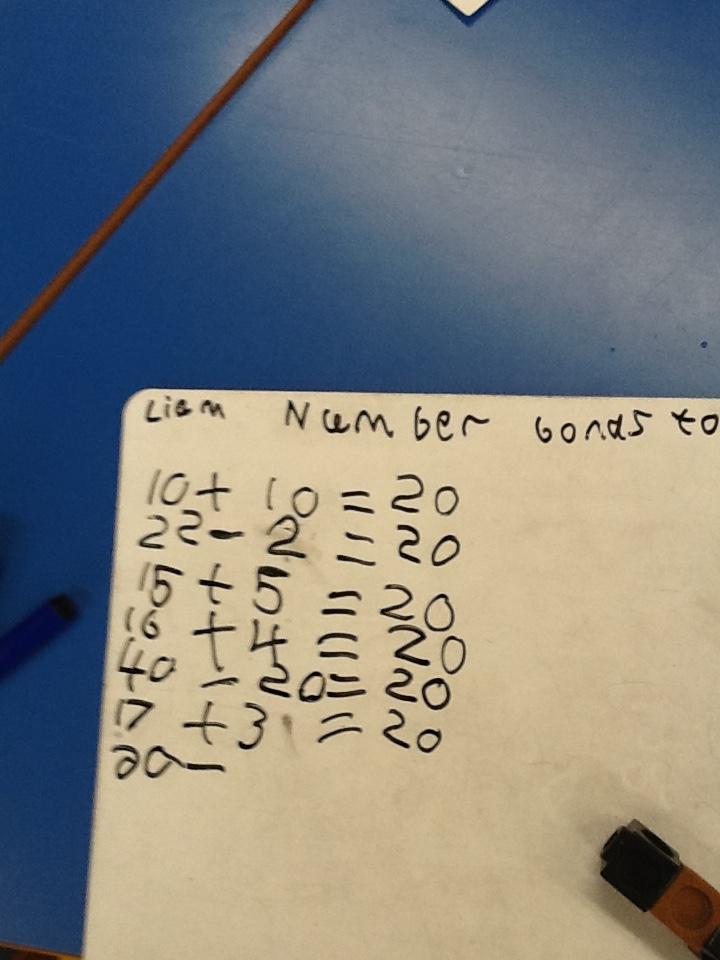 Liam Number bonds to
10 + 10 = 20
22 - 2 = 20
15 + 5 = 20
16 + 4 = 20
40 - 20 = 20
17 + 3 = 20
20 -